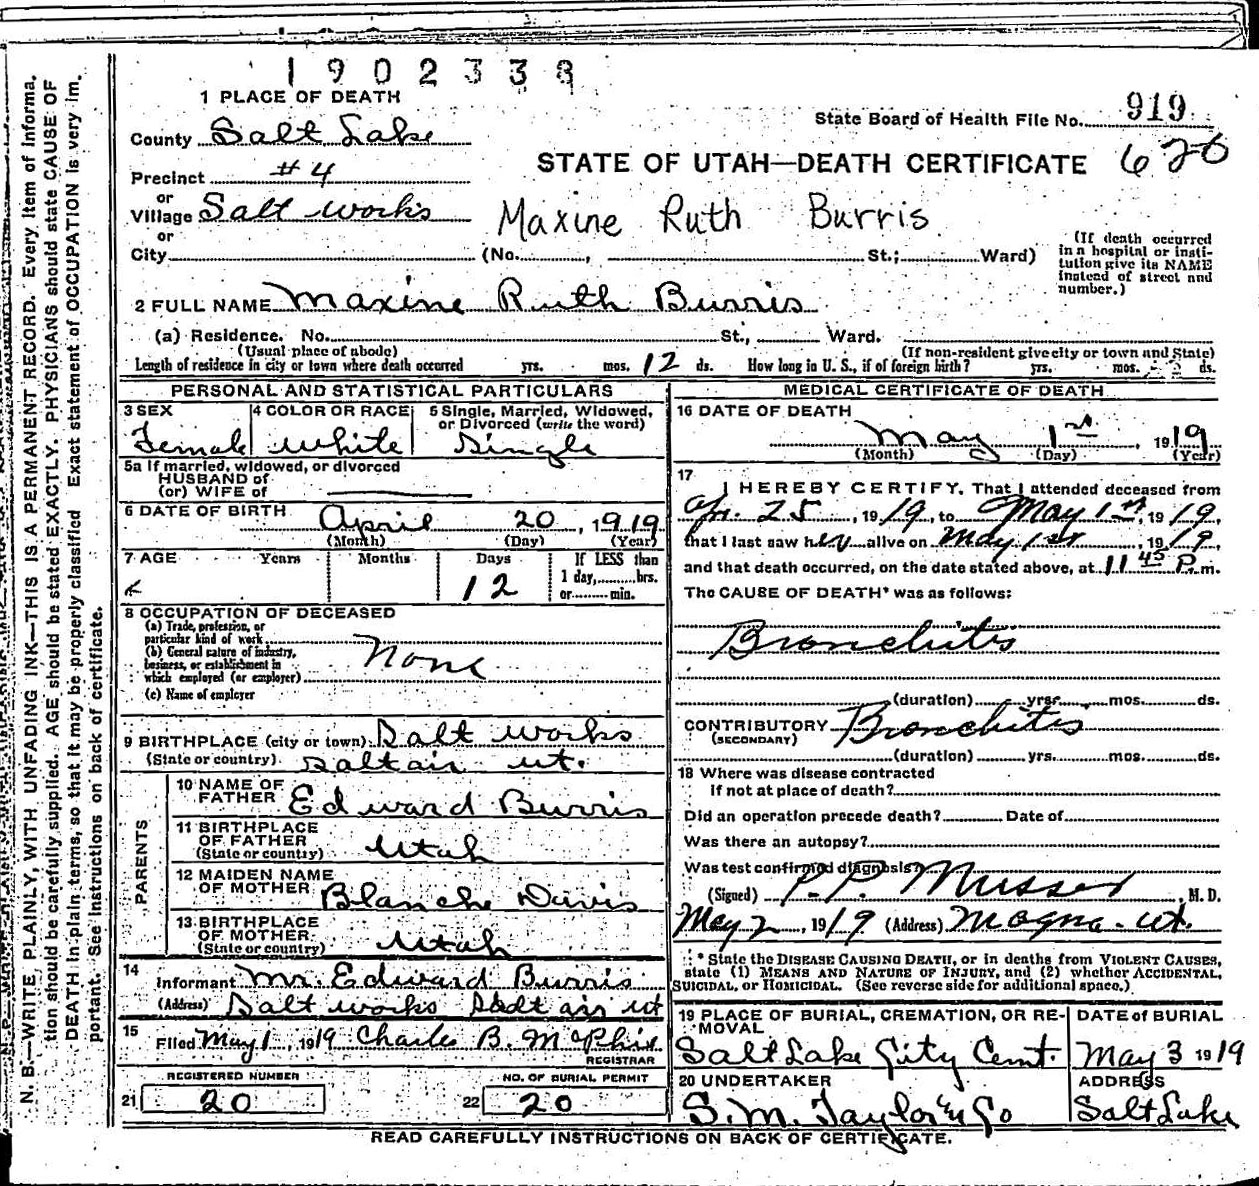 1902338
1 PLACE OF DEATH
County Salt Lake
State Board of Health File No. 919
Precinct #4
STATE OF UTAH—DEATH CERTIFICATE 626
or
Village Salt works
Maxine Ruth Burris
or
City (No. , St.; Ward)
(If death occurred in a hospital or insti-
tution give its NAME
instead of street and
number.)
2 FULL NAME Maxine Ruth Burris
(a) Residence. No. St., Ward.
(Usual place of abode) (If non-resident give city or town and State)
Length of residence in city or town where death occurred yrs. mos. 12 ds. How long in U. S., if of foreign birth? yrs. mos. ds.
PERSONAL AND STATISTICAL PARTICULARS
3 SEX
Female
4 COLOR OR RACE
White
5 Single, Married, Widowed,
or Divorced (write the word)
Single
5a If married, widowed, or divorced
HUSBAND of
(or) WIFE of
6 DATE OF BIRTH
April 20, 1919
(Month) (Day) (Year)
7 AGE Years Months Days If LESS than
1 day, hrs.
12 or min.
8 OCCUPATION OF DECEASED
(a) Trade, profession, or
particular kind of work
(b) General nature of industry,
business, or establishment in
which employed (or employer)
None
(c) Name of employer
9 BIRTHPLACE (city or town) Salt works
(State or country) Saltair Ut.
PARENTS
10 NAME OF
FATHER Edward Burris
11 BIRTHPLACE
OF FATHER
(State or country) Utah
12 MAIDEN NAME
OF MOTHER Blanche Davis
13 BIRTHPLACE
OF MOTHER
(State or country) Utah
14
Informant Mr. Edward Burris
(Address) Salt works Saltair Ut
15
Filed May 1, 1919 Charles B. McPhie
REGISTRAR
REGISTERED NUMBER
21 20
NO. OF BURIAL PERMIT
22 20
MEDICAL CERTIFICATE OF DEATH
16 DATE OF DEATH
May 1st, 1919
(Month) (Day) (Year)
17
I HEREBY CERTIFY, That I attended deceased from
Apr. 25, 1919, to May 1st, 1919,
that I last saw her alive on May 1st, 1919,
and that death occurred, on the date stated above, at 11 45 P. m.
The CAUSE OF DEATH* was as follows:
Bronchitis
(duration) yrs. mos. ds.
CONTRIBUTORY Bronchitis
(SECONDARY)
(duration) yrs. mos. ds.
18 Where was disease contracted
if not at place of death?
Did an operation precede death? Date of
Was there an autopsy?
Was test confirmed diagnosis?
(Signed) P. P. Musser, M. D.
May 2, 1919 (Address) Magna. Ut.
* State the DISEASE CAUSING DEATH, or in deaths from VIOLENT CAUSES,
state (1) MEANS AND NATURE OF INJURY, and (2) whether ACCIDENTAL,
SUICIDAL, or HOMICIDAL. (See reverse side for additional space.)
19 PLACE OF BURIAL, CREMATION, OR RE-
MOVAL
Salt Lake City Cemt.
DATE of BURIAL
May 3 1919
20 UNDERTAKER
S. M. Taylor & Co
ADDRESS
Salt Lake
READ CAREFULLY INSTRUCTIONS ON BACK OF CERTIFICATE.
N. B.—WRITE PLAINLY, WITH UNFADING INK—THIS IS A PERMANENT RECORD. Every item of informa-
tion should be carefully supplied. AGE should be stated EXACTLY. PHYSICIANS should state CAUSE OF
DEATH in plain terms, so that it may be properly classified. Exact statement of OCCUPATION is very im-
portant. See instructions on back of certificate.